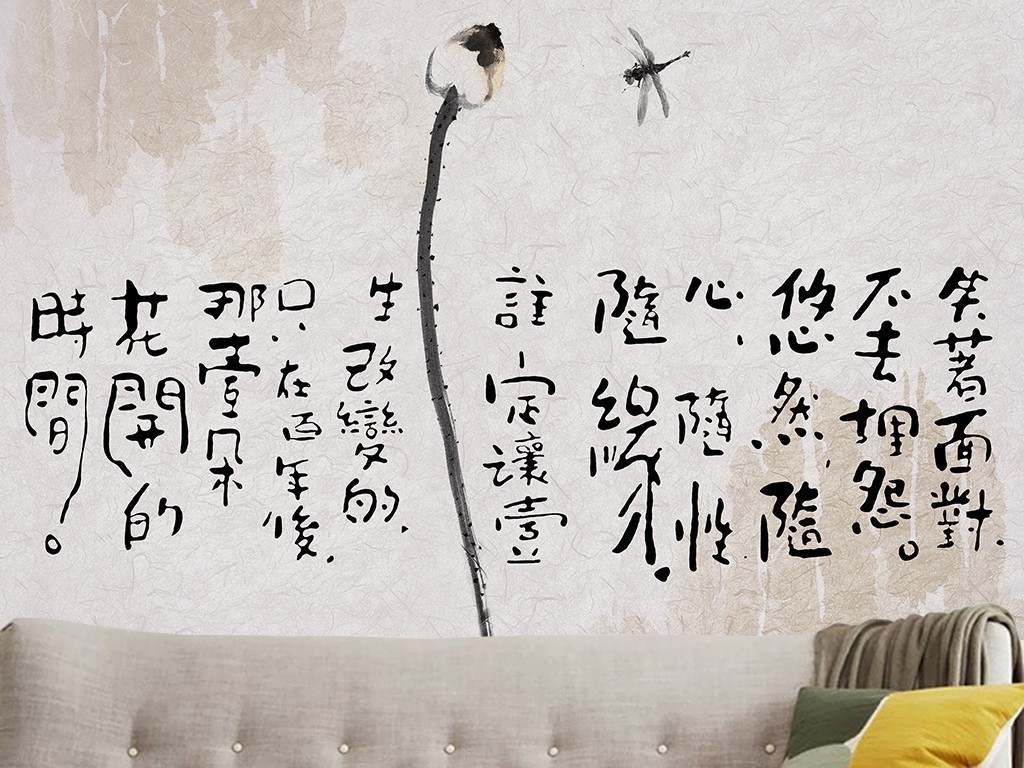 笑著面對.
不去埋怨。
悠然、隨
心、隨性
隨緣.
註定讓壹
生改變的.
只、在百年後.
那壹朵
花開的
時間。